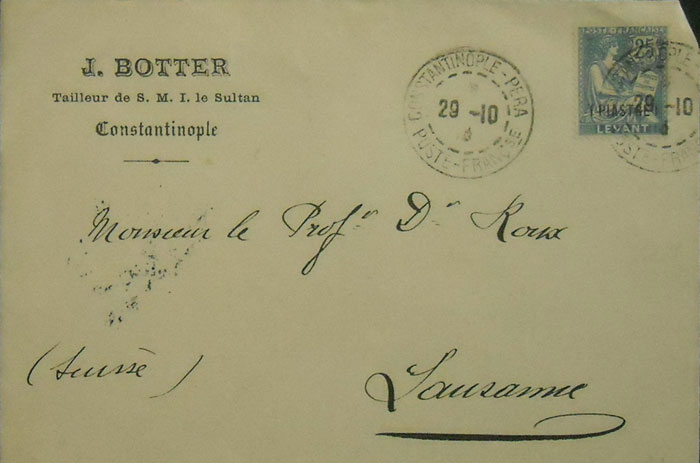 J. BOTTER
Tailleur de S. M. I. le Sultan
Constantinople
CONSTANTINOPLE - PERA
29 -10
POSTE-FRANÇSE
POSTE FRANÇAISE
25
1 PIASTRE 1
LEVANT
29 -10
Monsieur le Profr Dr Roux
(Suisse)
Lausanne